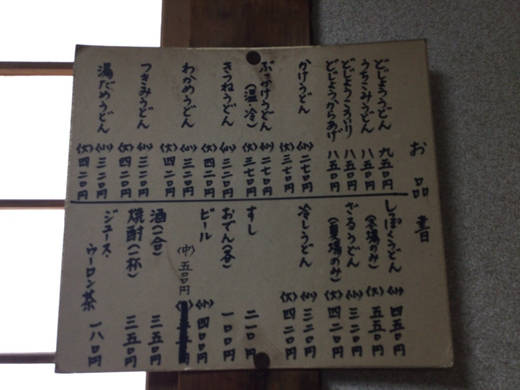 お品書
どじょううどん 九五〇円
うちこみうどん 八五〇円
どじょうころいり 八五〇円
どじょうからあげ 八五〇円
かけうどん (小)二七〇円
(大)三七〇円
ぶっかけうどん(温・冷) (小)二七〇円
(大)三七〇円
きつねうどん (小)三二〇円
(大)四二〇円
わかめうどん (小)三二〇円
(大)四二〇円
つきみうどん (小)三二〇円
(大)四二〇円
湯だめうどん (小)三二〇円
(大)四二〇円
しっぽくうどん(冬場のみ) (小)四五〇円
(大)五五〇円
ざるうどん(夏場のみ) (小)三二〇円
(大)四二〇円
冷しうどん (小)三二〇円
(大)四二〇円
すし 二一〇円
おでん(冬) 一〇〇円
ビール (小)四〇〇円
(中)五〇〇円
酒(一合) 三五〇円
焼酎(一杯) 三五〇円
ジュース・ウーロン茶 一八〇円